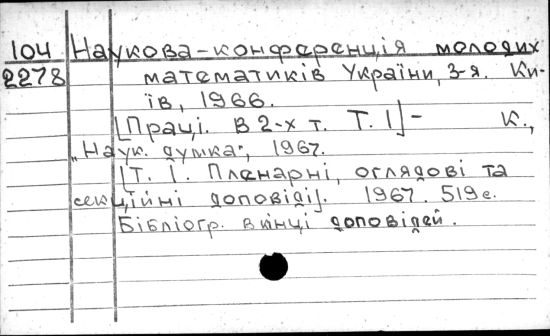 104 Наукова-конференція молодих
2278 математиків України, 3-я. Ки-
їв, 1966.
[Праці. В 2-х т. Т. 1] – К.,
„Наук. думка", 1967.
[Т. 1. Пленарні, оглядові та
секційні доповіді]. 1967. 519 с.
Бібліогр. в кінці доповідей.